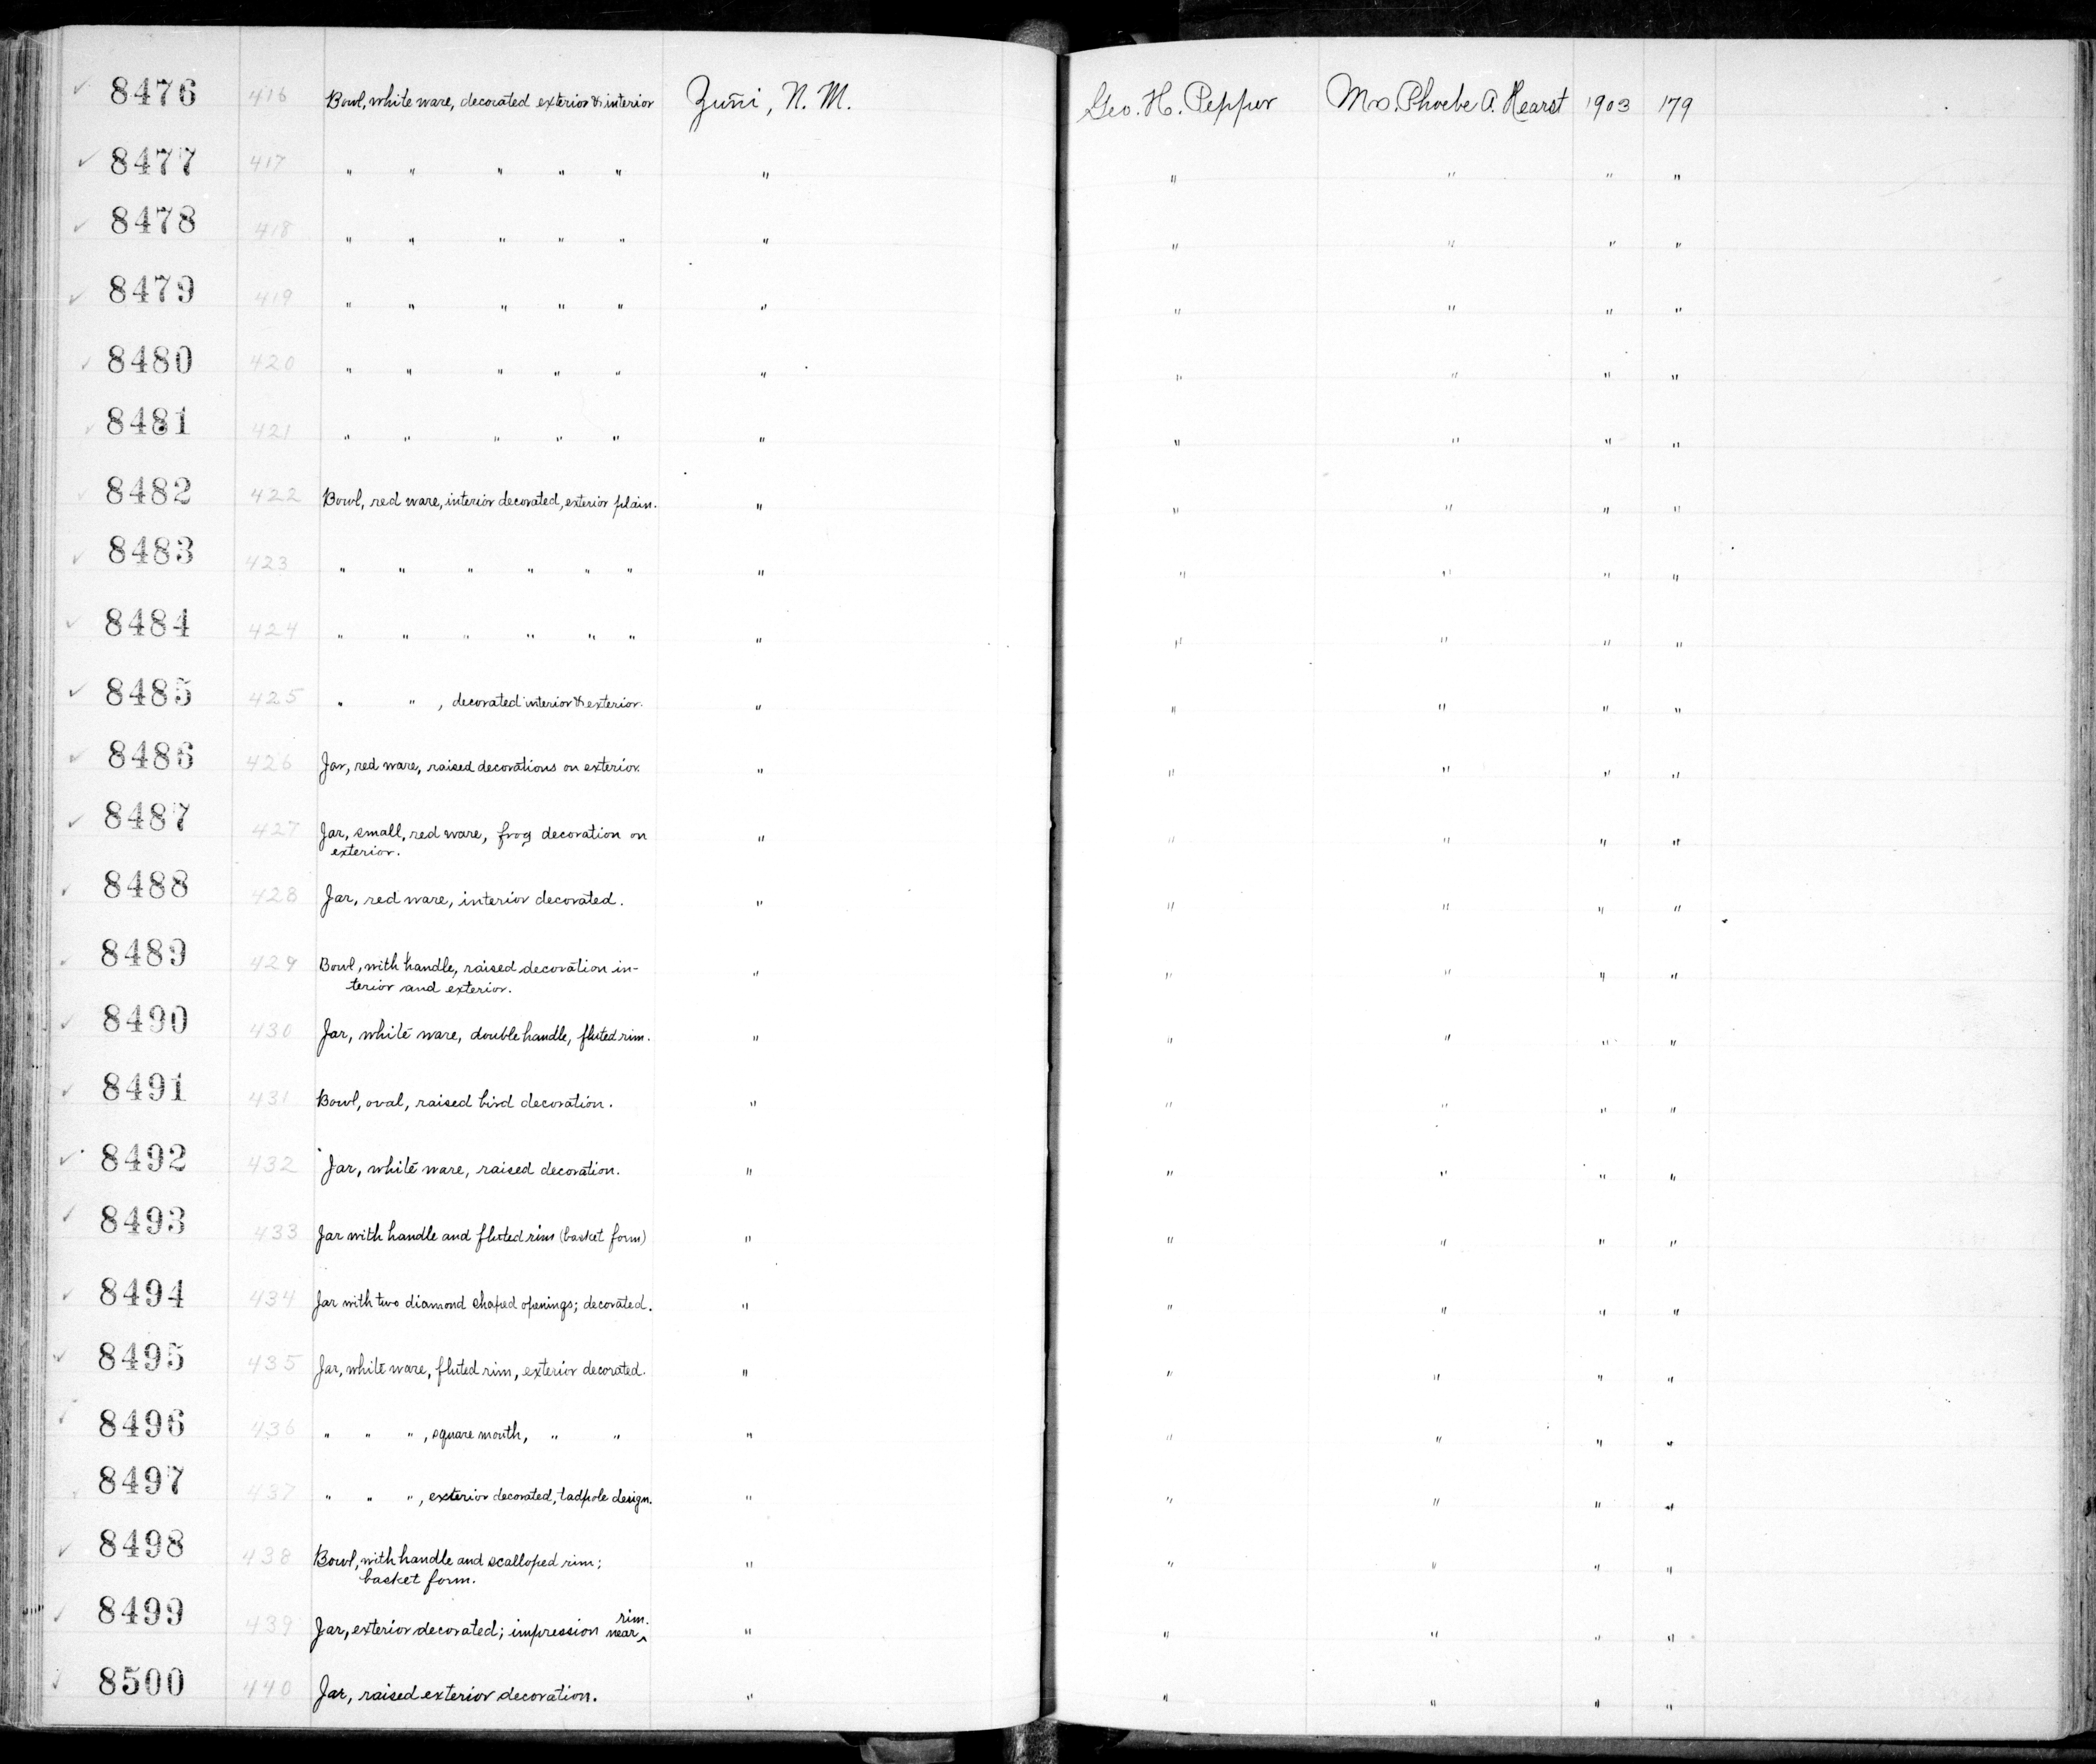 8476 416 Bowl, white ware, decorated exterior & interior Zuñi, N. M. Geo. H. Pepper Mrs. Phoebe A. Hearst 1903 179
8477 417 " " " " " " " " " "
8478 418 " " " " " " " " " "
8479 419 " " " " " " " " " "
8480 420 " " " " " " " " " "
8481 421 " " " " " " " " " "
8482 422 Bowl, red ware, interior decorated, exterior plain. " " " " "
8483 423 " " " " " " " " " " "
8484 424 " " " " " " " " " " "
8485 425 " " , decorated interior & exterior. " " " " "
8486 426 Jar, red ware, raised decorations on exterior. " " " " "
8487 427 Jar, small, red ware, frog decoration on " " " " "
exterior.
8488 428 Jar, red ware, interior decorated. " " " " "
8489 429 Bowl, with handle, raised decoration in- " " " " "
terior and exterior.
8490 430 Jar, white ware, double handle, fluted rim. " " " " "
8491 431 Bowl, oval, raised bird decoration. " " " " "
8492 432 Jar, white ware, raised decoration. " " " " "
8493 433 Jar with handle and fluted rim (basket form) " " " " "
8494 434 Jar with two diamond shaped openings; decorated. " " " " "
8495 435 Jar, white ware, fluted rim, exterior decorated. " " " " "
8496 436 " " " , square mouth, " " " " " " "
8497 437 " " " , exterior decorated, tadpole design. " " " " "
8498 438 Bowl, with handle and scalloped rim; " " " " "
basket form.
8499 439 Jar, exterior decorated; impression near ^ rim. " " " " "
8500 440 Jar, raised exterior decoration. " " " " "